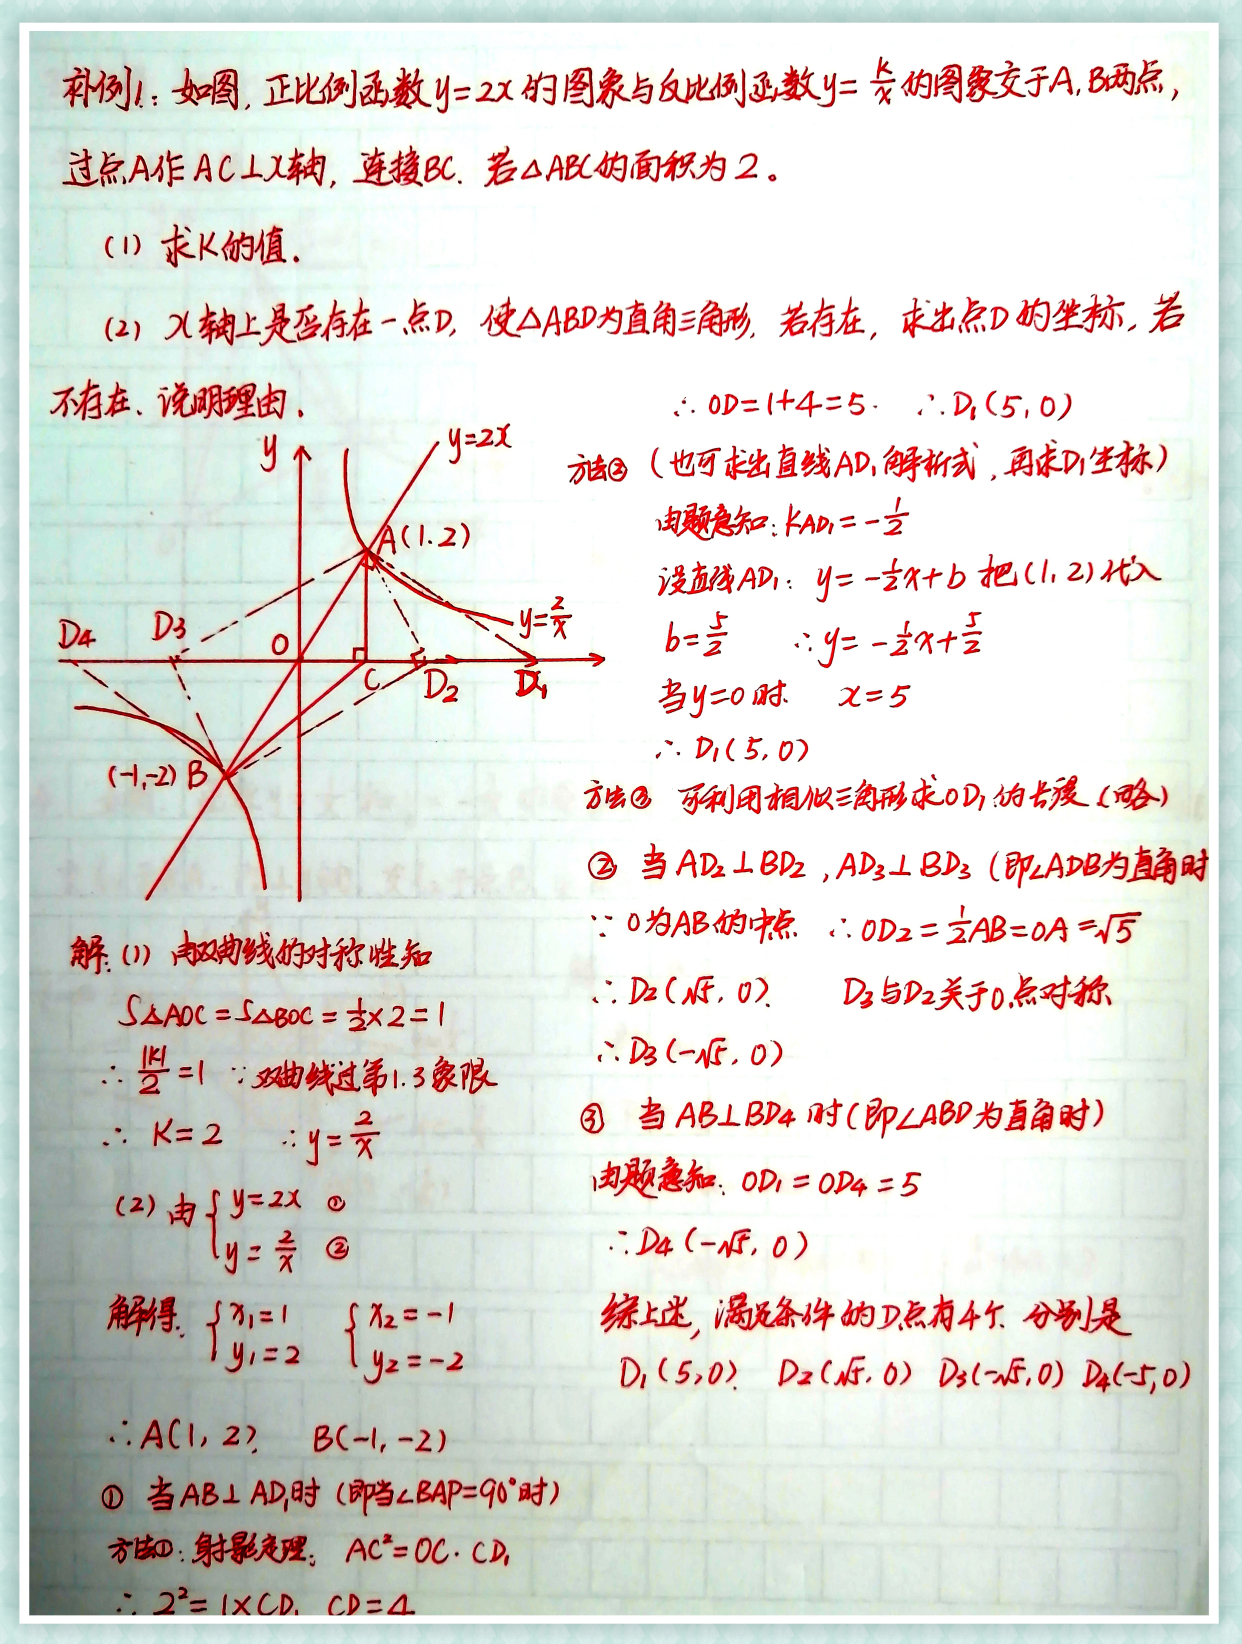 补例1：如图，正比例函数y=2x的图象与反比例函数y=k/x的图象交于A，B两点，
过点A作AC⊥x轴，连接BC．若△ABC的面积为2。
(1) 求K的值．
(2) x轴上是否存在一点D，使△ABD为直角三角形，若存在，求出点D的坐标，若
不存在、说明理由．
y
y=2x
A(1.2)
y=2/x
D4
D3
O
C
D2
D1
(-1,-2) B
解：(1) 由双曲线的对称性知
S△AOC=S△BOC=1/2×2=1
∴ |K|/2=1 ∵双曲线过第1.3象限
∴ K=2 ∴y=2/x
(2) 由{y=2x ①
y=2/x ②
解得：{x₁=1 {x₂=-1
y₁=2 y₂=-2
∴A(1，2)， B(-1，-2)
① 当AB⊥AD₁时 (即当∠BAP=90°时)
方法①：射影定理： AC²=OC·CD₁
∴ 2²=1×CD₁ CD=4
∴ OD=1+4=5． ∴D₁(5，0)
方法② (也可求出直线AD₁解析式，再求D₁坐标)
由题意知：KAD₁=-1/2
设直线AD₁：y=-1/2x+b 把(1，2)代入
b=5/2 ∴y=-1/2x+5/2
当y=0时． x=5
∴ D₁(5，0)
方法③ 可利用相似三角形求OD₁的长度．(略)
② 当AD₂⊥BD₂，AD₃⊥BD₃ (即∠ADB为直角时
∵ O为AB的中点 ∴OD₂=1/2AB=OA=√5
∴D₂(√5，0)． D₃与D₂关于O点对称
∴D₃(-√5，0)
③ 当AB⊥BD₄时(即∠ABD为直角时)
由题意知：OD₁=OD₄=5
∴D₄(-√5，0)
综上述，满足条件的D点有4个．分别是
D₁(5,0)． D₂(√5，0) D₃(-√5,0) D₄(-5,0)